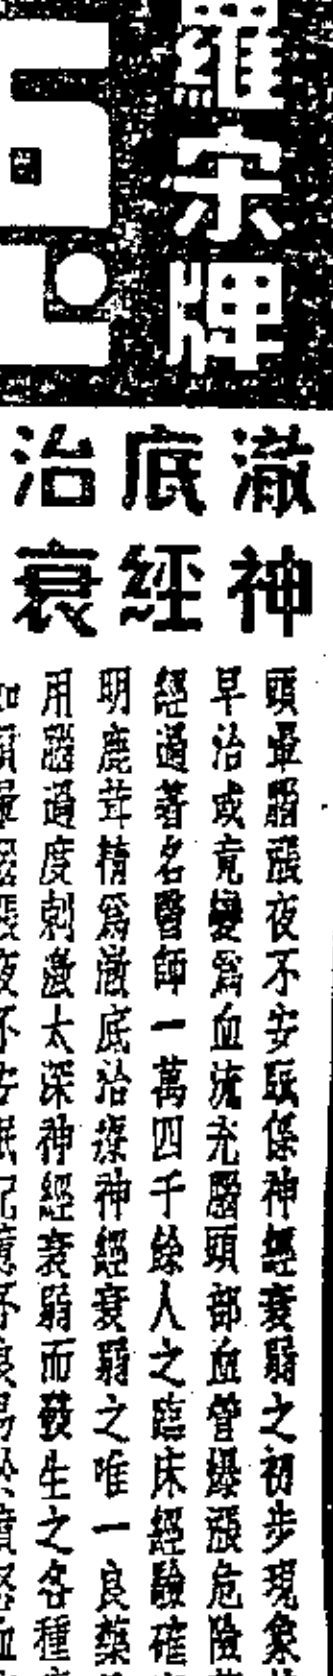 羅宋牌
澈底治
神經衰
頭暈腦漲夜不安眠係神經衰弱之初步現象
早治或竟變爲血流充腦頭部血管爆漲危險
經過著名醫師一萬四千餘人之臨床經驗確
明鹿茸精爲澈底治療神經衰弱之唯一良藥
用腦過度刺激太深神經衰弱而發生之各種